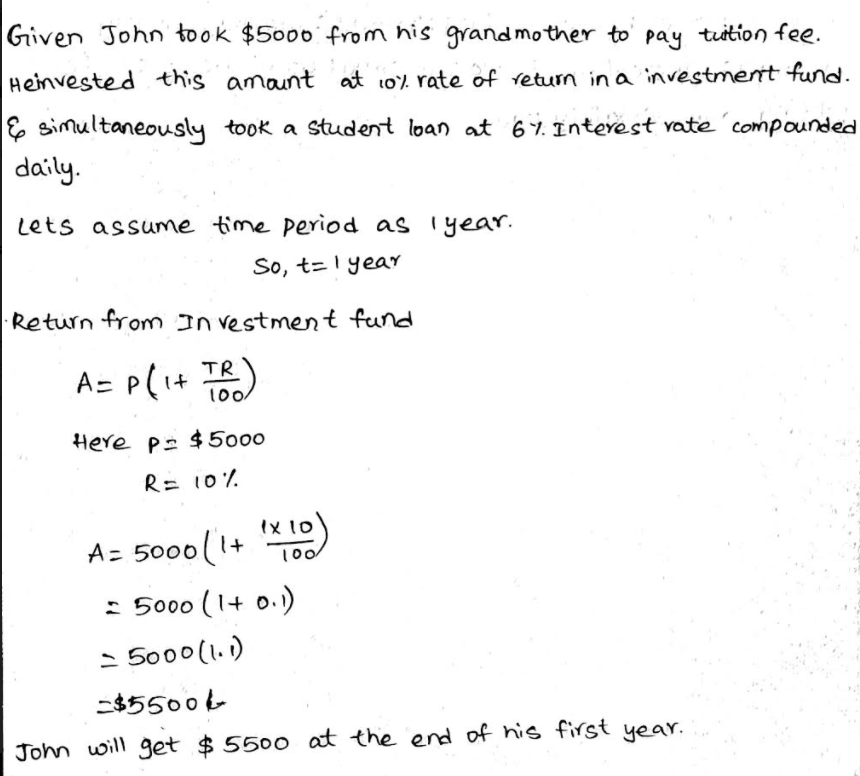 Given John took $5000 from his grandmother to pay tuition fee.
Heinvested this amount at 10% rate of return in a investment fund.
& simultaneously took a student loan at 6% Interest rate compounded
daily.
Lets assume time period as 1 year.
So, t=1 year
Return from Investment fund
A= P(1+ TR/100)
Here P= $5000
R= 10%
A= 5000(1+ 1x10/100)
= 5000(1+ 0.1)
= 5000(1.1)
=$5500
John will get $5500 at the end of his first year.